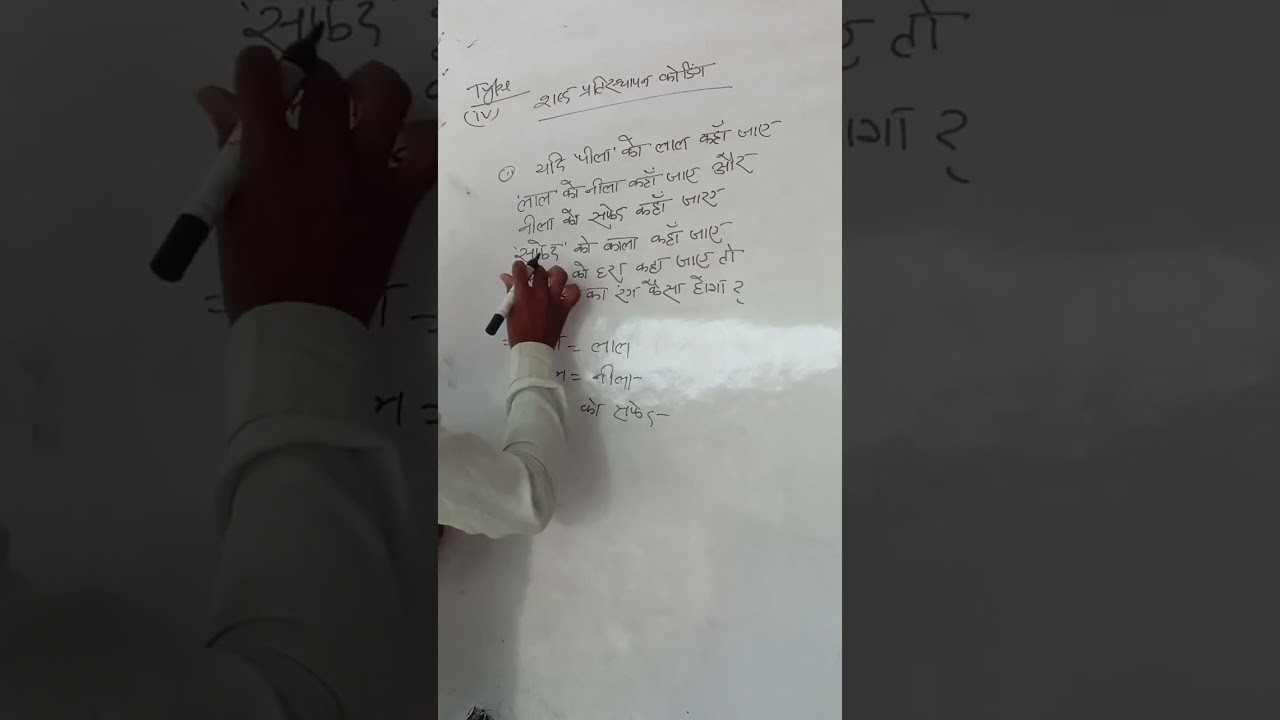 Type
(IV)
शब्द प्रतिस्थापन कोडिंग
① यदि 'पीला' को लाल कहाँ जाए
'लाल' को नीला कहाँ जाए और
नीला को सफेद कहाँ जाए
'सफेद' को काला कहाँ जाए
को हरा कहा जाए तो
का रंग कैसा होगा ?
= लाल
= नीला
को सफेद